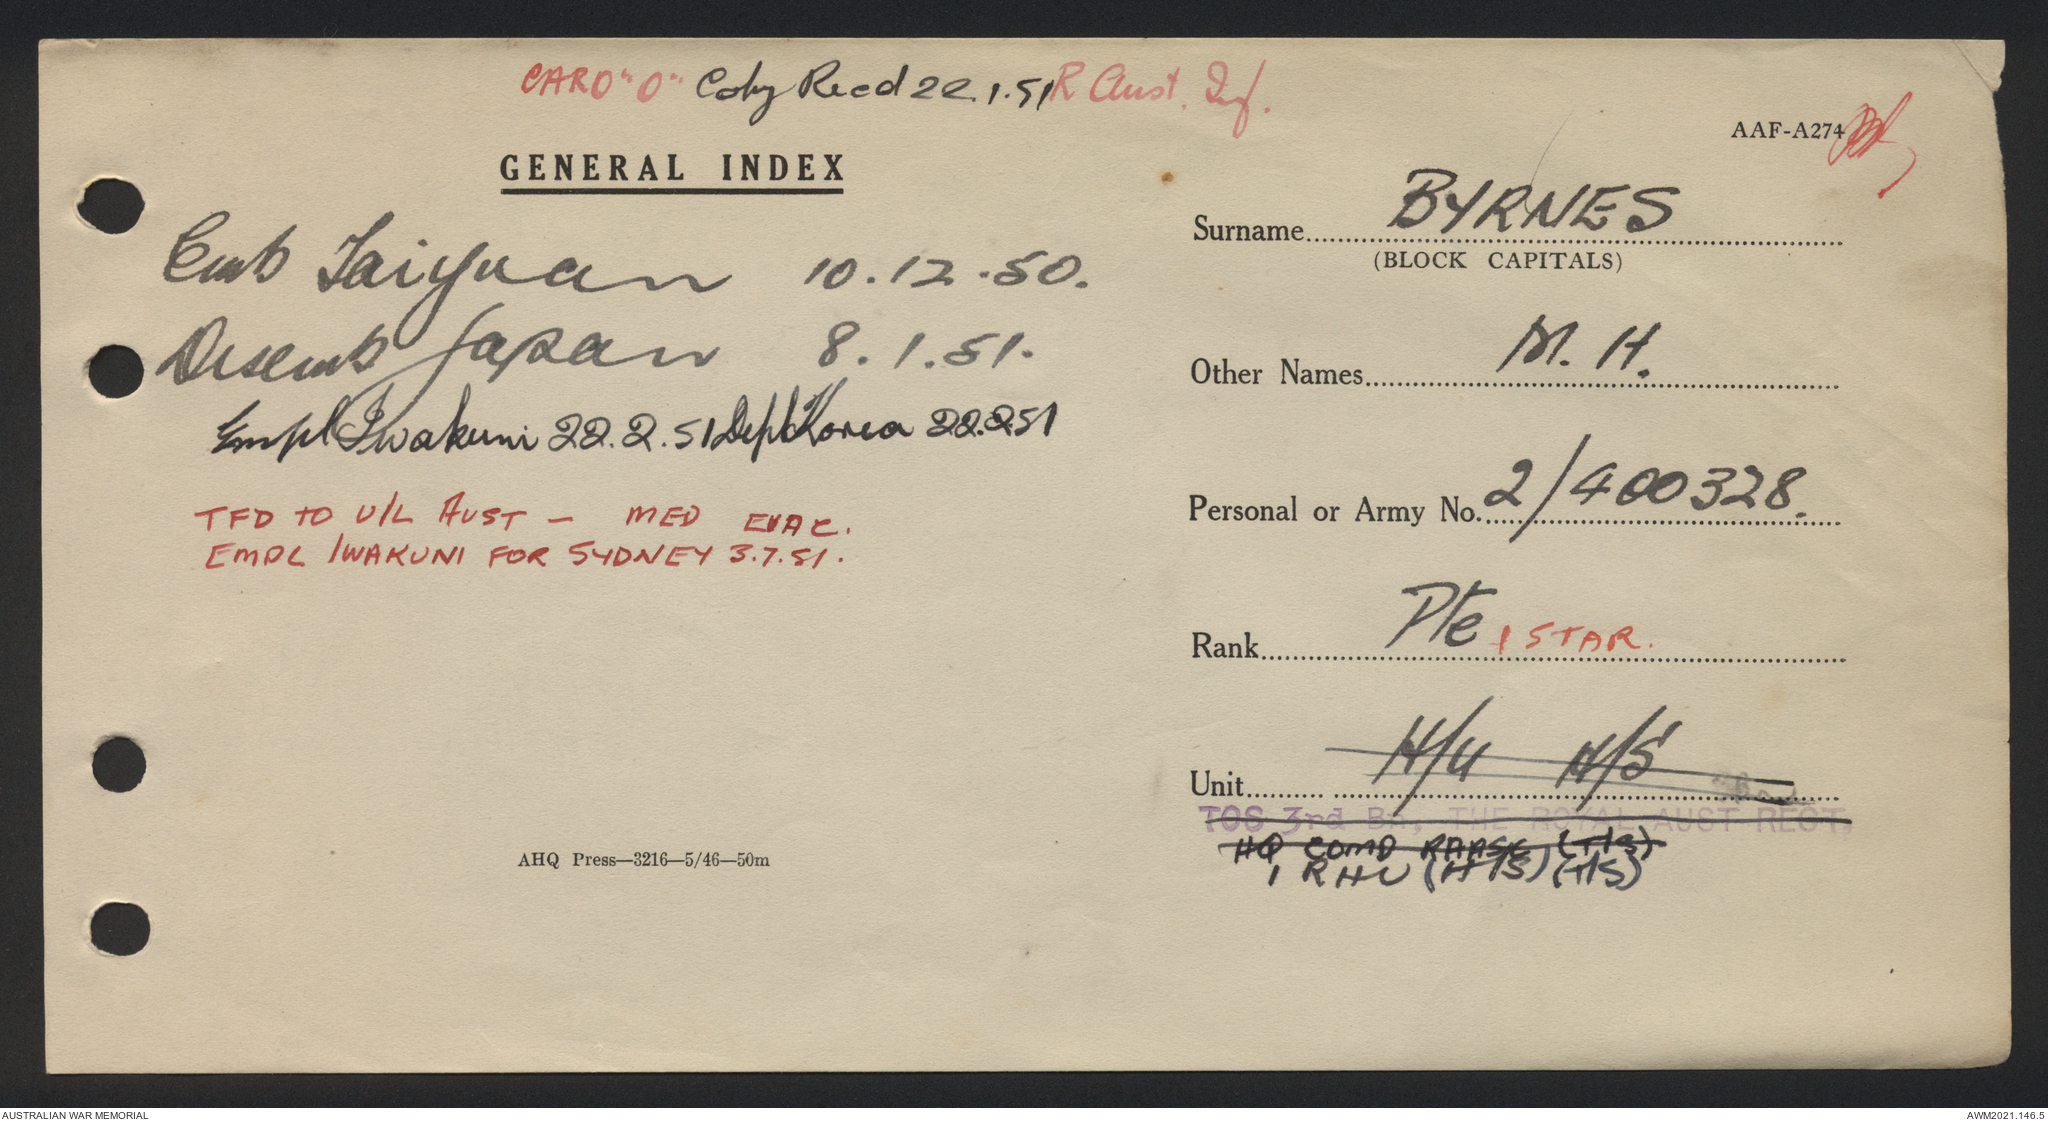 CARO "O" Coby Recd 22.1.51 R Aust. Inf.
AAF-A274
GENERAL INDEX
Emb Taiyuan 10.12.50.
Disemb Japan 8.1.51.
Empl Iwakuni 22.2.51 Depl Korea 22.2.51
TFD TO U/L AUST — MED EVAC.
EMPL IWAKUNI FOR SYDNEY 3.7.51.
AHQ Press—3216—5/46—50m
Surname BYRNES
(BLOCK CAPITALS)
Other Names M. H.
Personal or Army No. 2/400328.
Rank Pte 1 STAR.
Unit H/U H/S
TOS 3rd Bn, THE ROYAL AUST REGT.
HQ COMD RAASC (T/S)
1 RHU (H/S) (T/S)
AUSTRALIAN WAR MEMORIAL
AWM2021.146.5